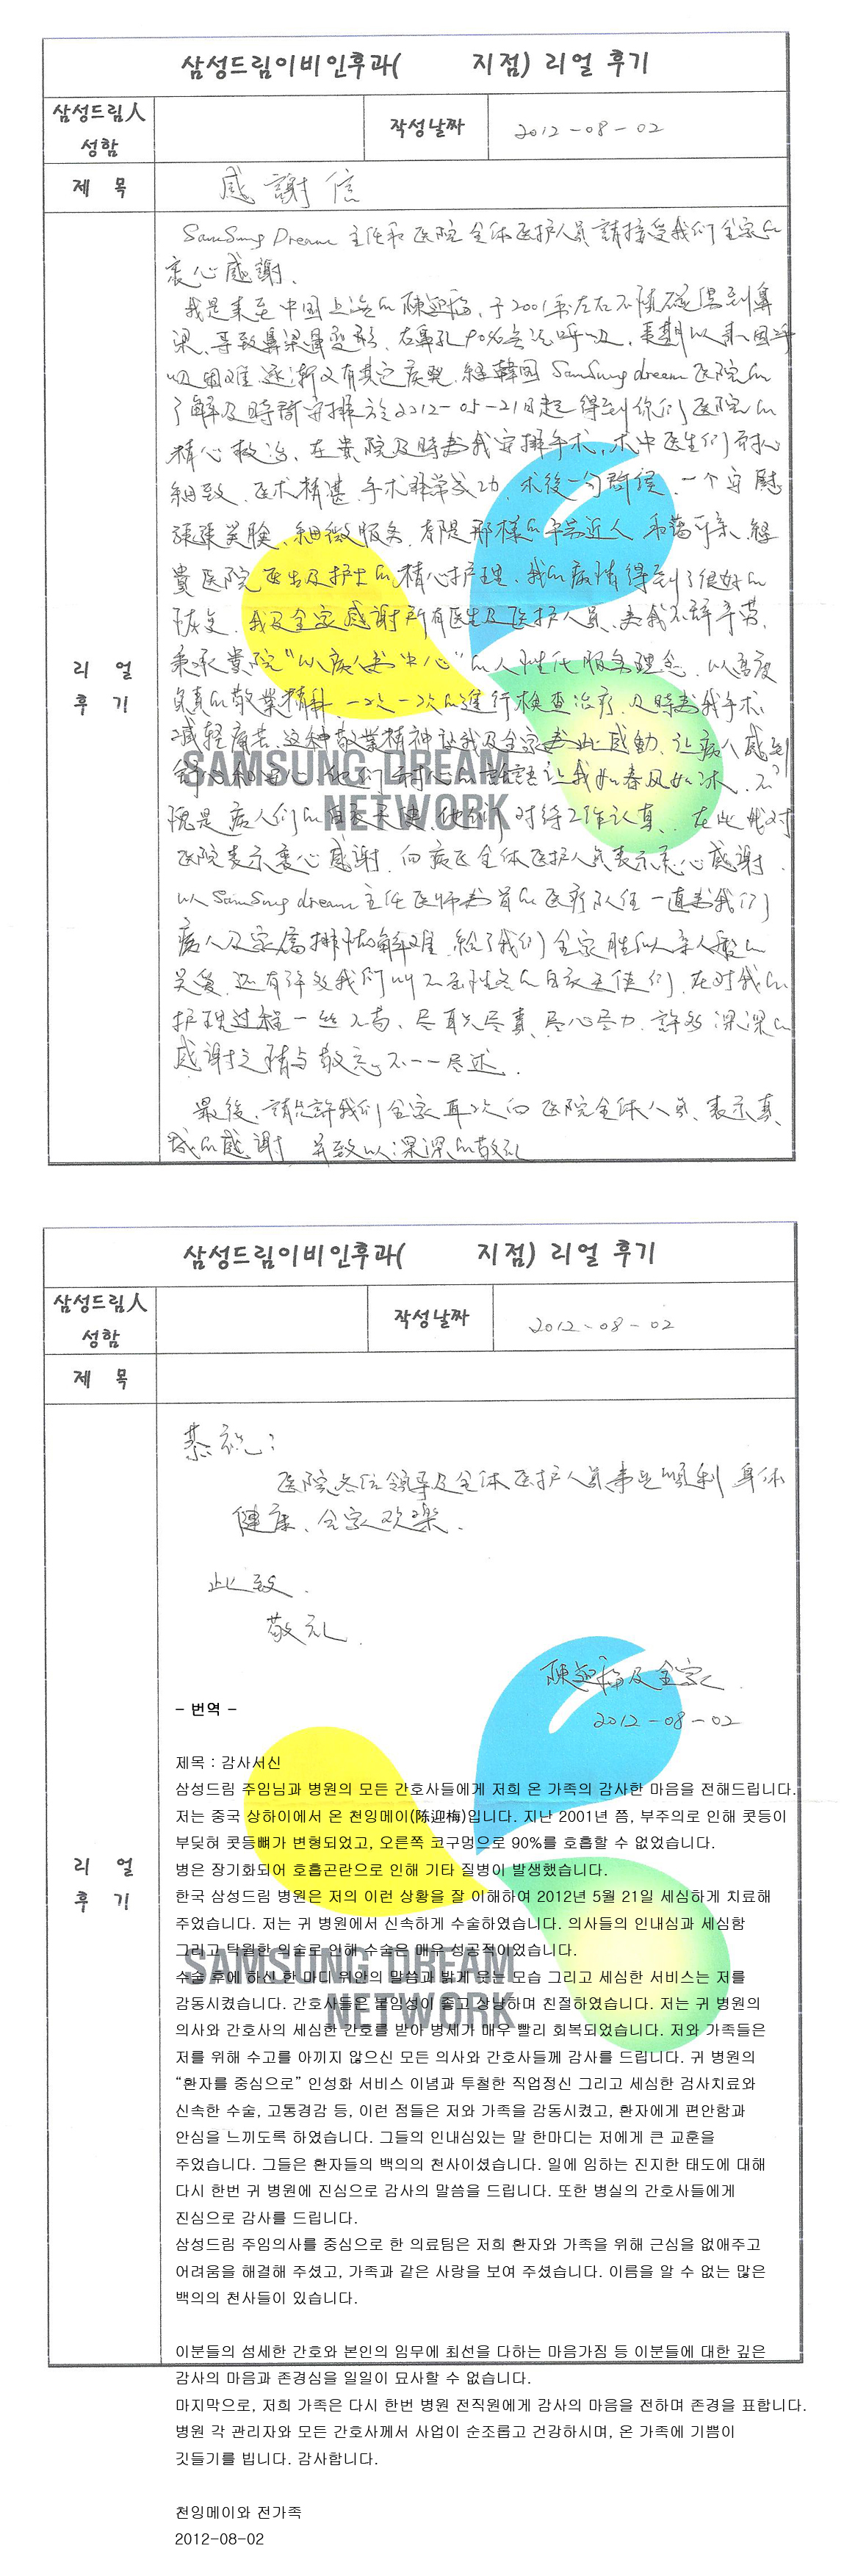 삼성드림이비인후과( 지점) 리얼 후기
삼성드림人
성함
작성날짜
2012-08-02
제 목
感謝信
SamSung Dream 主任和医院全体医护人员請接受我们全家的
衷心感謝.
我是来至中国上海的陳迎梅, 于2001年左右不慎碰傷到鼻
梁、导致鼻梁骨变形, 右鼻孔90%无法呼吸, 長期以来因呼
吸困难逐渐又有其它疾患, 經韓国 SamSung dream 医院的
了解及時 安排於2012-05-21日起得到你们医院的
精心救治, 在貴院及時為我安排手术, 术中医生们耐心
細致, 医术精湛, 手术非常成功, 术後一句問候, 一个安慰
張張笑臉、細微服务, 都是那樣的平易近人, 和藹可亲, 經
貴医院医生及护士的精心护理, 我的病情得到了很好的
恢复, 我及全家感谢所有医生及医护人员, 為我不辞辛劳,
秉承貴院“以病人為中心”的人性化服务理念, 以高度
負責的敬業精神, 一次一次的進行檢查治疗, 及時為我手术
减轻痛苦, 这种敬業精神让我及全家為此感動, 让病人感到
他们耐心的話語让我如春风如沐,
是病人们的白衣天使, 他们对待工作认真, 在此我对
医院表示衷心感謝, 向病区全体医护人员表示衷心感謝,
以 SamSung dream 主任医师為首的医疗队伍一直為我们
病人及家属排忧解难, 給了我们全家胜似亲人般的
关爱, 还有许多我们叫不出姓名的白衣天使们, 在对我的
护理过程一丝不苟, 尽职尽責, 尽心尽力, 許多深深的
感謝之情与敬意, 不一一尽述.
最後, 請允許我们全家再次向医院全体人员, 表示真
誠的感謝 并致以深深的敬礼
리 얼
후 기
SAMSUNG DREAM
NETWORK
삼성드림이비인후과( 지점) 리얼 후기
삼성드림人
성함
작성날짜
2012-08-02
제 목
恭祝:
医院各位領导及全体医护人员事業順利 身体
健康、全家欢樂.
此致.
敬礼.
陳迎梅及全家.
2012-08-02
- 번역 -
제목 : 감사서신
삼성드림 주임님과 병원의 모든 간호사들에게 저희 온 가족의 감사한 마음을 전해드립니다.
저는 중국 상하이에서 온 천잉메이(陈迎梅)입니다. 지난 2001년 쯤, 부주의로 인해 콧등이
부딪혀 콧등뼈가 변형되었고, 오른쪽 코구멍으로 90%를 호흡할 수 없었습니다.
병은 장기화되어 호흡곤란으로 인해 기타 질병이 발생했습니다.
한국 삼성드림 병원은 저의 이런 상황을 잘 이해하여 2012년 5월 21일 세심하게 치료해
주었습니다. 저는 귀 병원에서 신속하게 수술하였습니다. 의사들의 인내심과 세심함
그리고 탁월한 의술로 인해 수술은 매우 성공적이었습니다.
수술 후에 하신 한 마디 위안의 말씀과 밝게 웃는 모습 그리고 세심한 서비스는 저를
감동시켰습니다. 간호사들은 붙임성이 좋고 상냥하며 친절하였습니다. 저는 귀 병원의
의사와 간호사의 세심한 간호를 받아 병세가 매우 빨리 회복되었습니다. 저와 가족들은
저를 위해 수고를 아끼지 않으신 모든 의사와 간호사들께 감사를 드립니다. 귀 병원의
“환자를 중심으로” 인성화 서비스 이념과 투철한 직업정신 그리고 세심한 검사치료와
신속한 수술, 고통경감 등, 이런 점들은 저와 가족을 감동시켰고, 환자에게 편안함과
안심을 느끼도록 하였습니다. 그들의 인내심있는 말 한마디는 저에게 큰 교훈을
주었습니다. 그들은 환자들의 백의의 천사이셨습니다. 일에 임하는 진지한 태도에 대해
다시 한번 귀 병원에 진심으로 감사의 말씀을 드립니다. 또한 병실의 간호사들에게
진심으로 감사를 드립니다.
삼성드림 주임의사를 중심으로 한 의료팀은 저희 환자와 가족을 위해 근심을 없애주고
어려움을 해결해 주셨고, 가족과 같은 사랑을 보여 주셨습니다. 이름을 알 수 없는 많은
백의의 천사들이 있습니다.
이분들의 섬세한 간호와 본인의 임무에 최선을 다하는 마음가짐 등 이분들에 대한 깊은
감사의 마음과 존경심을 일일이 묘사할 수 없습니다.
마지막으로, 저희 가족은 다시 한번 병원 전직원에게 감사의 마음을 전하며 존경을 표합니다.
병원 각 관리자와 모든 간호사께서 사업이 순조롭고 건강하시며, 온 가족에 기쁨이
깃들기를 빕니다. 감사합니다.
천잉메이와 전가족
2012-08-02
리 얼
후 기
SAMSUNG DREAM
NETWORK